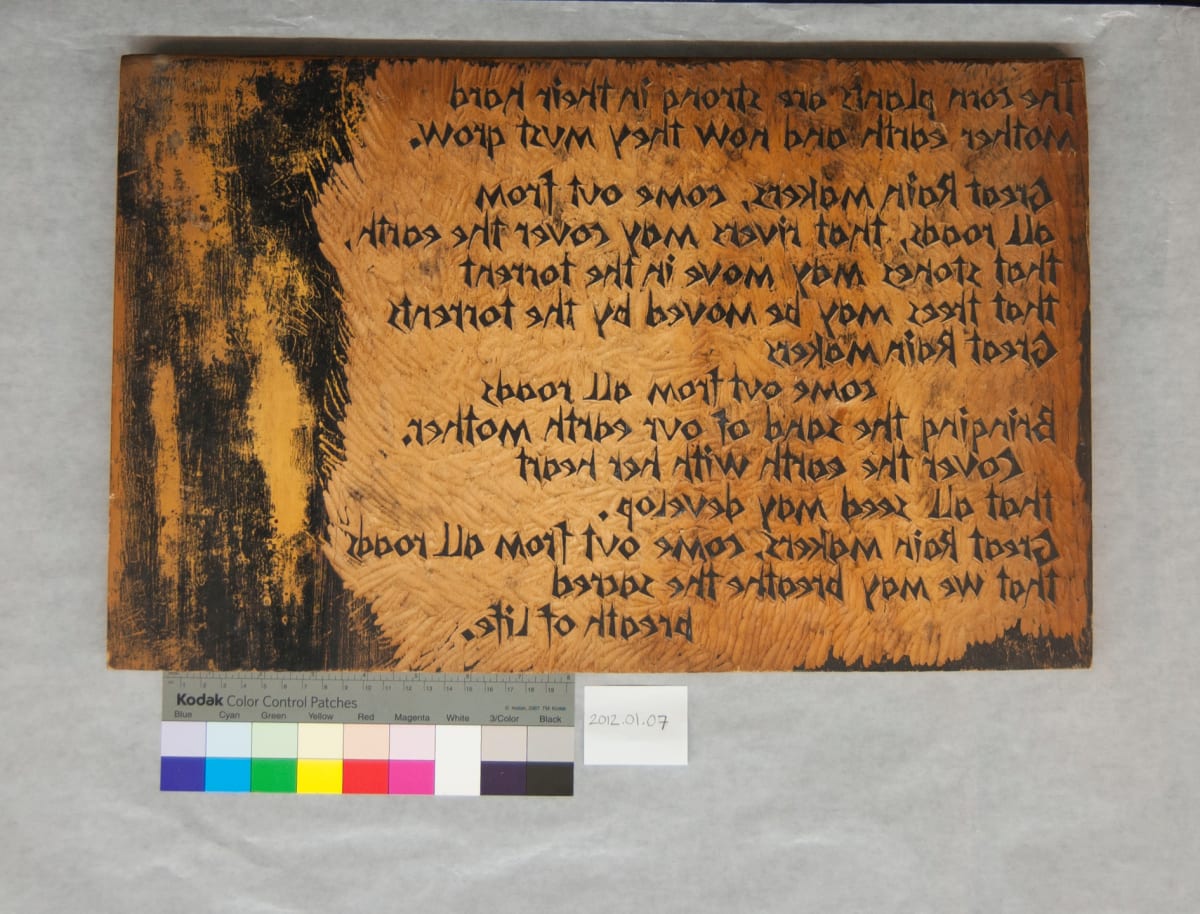 The corn plants are strong in their hard
mother earth and now they must grow.
Great Rain makers, come out from
all roads, that rivers may cover the earth,
that stones may move in the torrent
that trees may be moved by the torrents
Great Rain makers
come out from all roads
Bringing the sand of our earth mother.
Cover the earth with her heart
that all seed may develop.
Great Rain makers, come out from all roads
that we may breathe the sacred
breath of Life.
Kodak Color Control Patches
Blue Cyan Green Yellow Red Magenta White 3/Color Black
2012.01.07